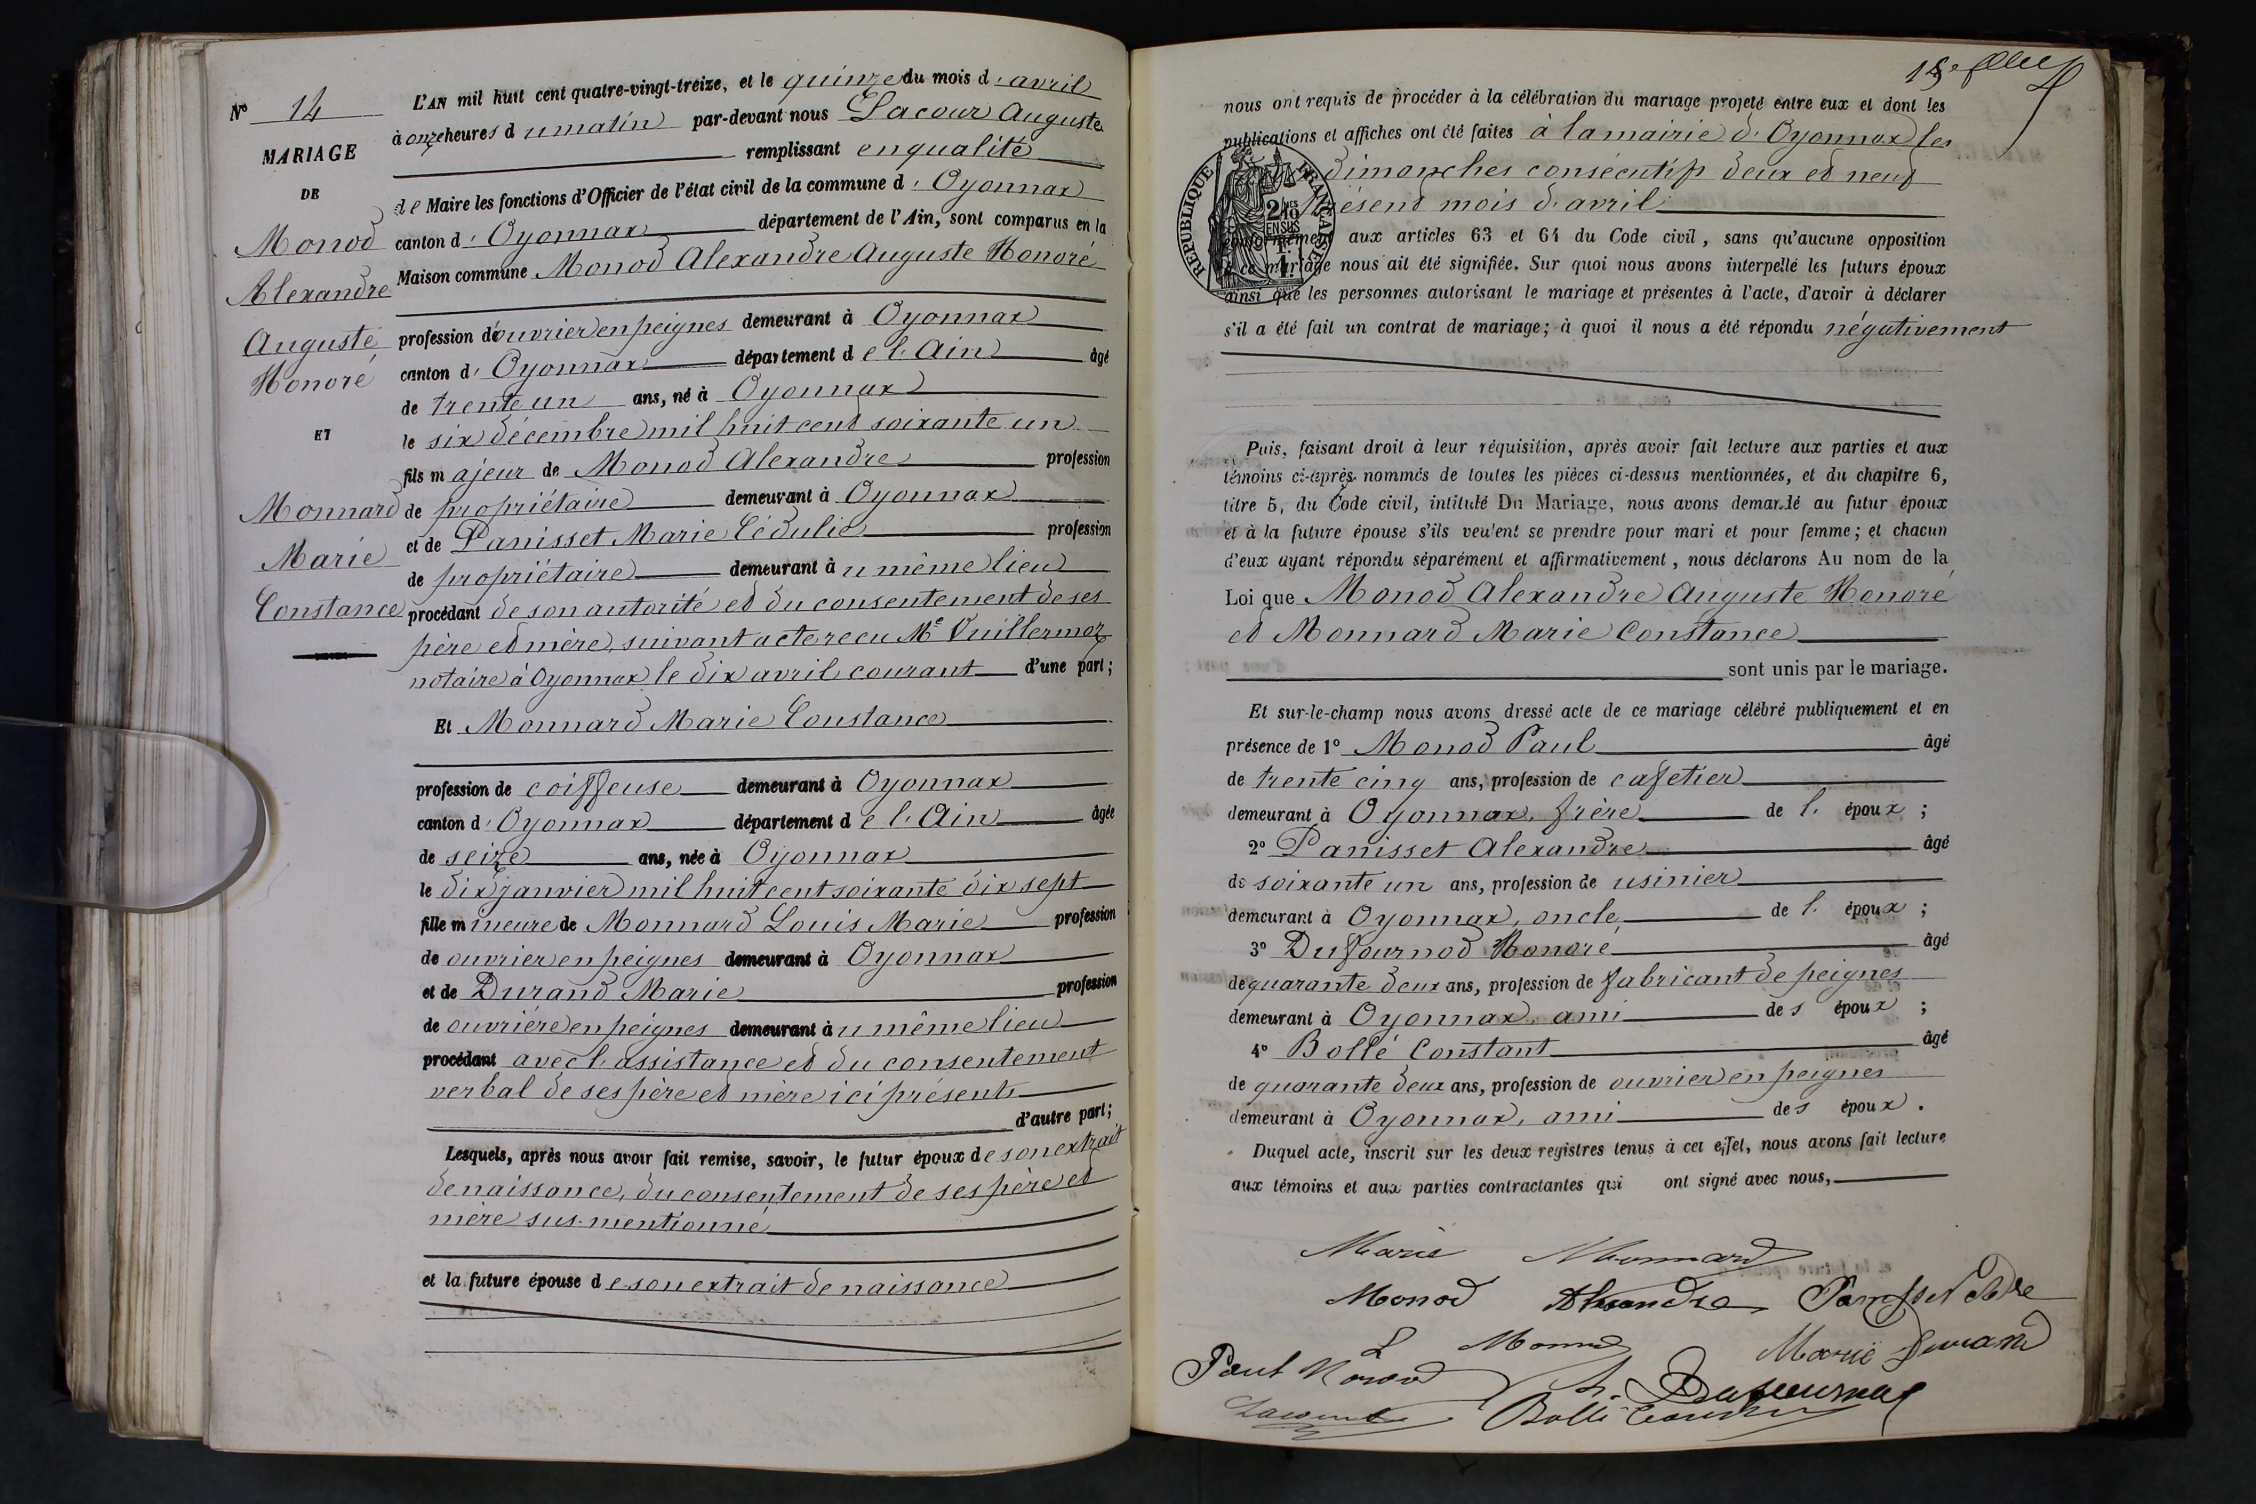 N° 14
MARIAGE
DE
Monod
Alexandre
Auguste
Honoré
ET
Monnard
Marie
Constance
L'AN mil huit cent quatre-vingt-treize, et le quinze du mois d'avril
à onze heures du matin par-devant nous Lacour Auguste
remplissant en qualité
de Maire les fonctions d'Officier de l'état civil de la commune d'Oyonnax
canton d'Oyonnax département de l'Ain, sont comparus en la
Maison commune Monod Alexandre Auguste Honoré
profession d'ouvrier en peignes demeurant à Oyonnax
canton d'Oyonnax département de l'Ain âgé
de trente un ans, né à Oyonnax
le six décembre mil huit cent soixante un
fils majeur de Monod Alexandre profession
de propriétaire demeurant à Oyonnax
et de Panisset Marie Cédulie profession
de propriétaire demeurant à u même lieu
procédant de son autorité et du consentement de ses
père et mère, suivant acte recu Me Vuillermoz
notaire à Oyonnax le dix avril courant d'une part;
Et Monnard Marie Constance
profession de coiffeuse demeurant à Oyonnax
canton d'Oyonnax département de l'Ain âgée
de seize ans, née à Oyonnax
le dix janvier mil huit cent soixante dix sept
fille mineure de Monnard Louis Marie profession
de ouvrier en peignes demeurant à Oyonnax
et de Durand Marie profession
de ouvrière en peignes demeurant à u même lieu
procédant avec l'assistance et du consentement
verbal de ses père et mère ici présents
d'autre part;
Lesquels, après nous avoir fait remise, savoir, le futur époux de son extrait
de naissance, du consentement de ses père et
mère sus-mentionné
et la future épouse de son extrait de naissance
nous ont requis de procéder à la célébration du mariage projeté entre eux et dont les
publications et affiches ont été faites à la mairie d'Oyonnax les
dimanches consécutifs deux et neuf
présent mois d'avril
RÉPUBLIQUE FRANÇAISE
conformément aux articles 63 et 64 du Code civil, sans qu'aucune opposition
à ce mariage nous ait été signifiée. Sur quoi nous avons interpellé les futurs époux
ainsi que les personnes autorisant le mariage et présentes à l'acte, d'avoir à déclarer
s'il a été fait un contrat de mariage; à quoi il nous a été répondu négativement
Puis, faisant droit à leur réquisition, après avoir fait lecture aux parties et aux
témoins ci-après nommés de toutes les pièces ci-dessus mentionnées, et du chapitre 6,
titre 5, du Code civil, intitulé Du Mariage, nous avons demandé au futur époux
et à la future épouse s'ils veulent se prendre pour mari et pour femme; et chacun
d'eux ayant répondu séparément et affirmativement, nous déclarons Au nom de la
Loi que Monod Alexandre Auguste Honoré
et Monnard Marie Constance
sont unis par le mariage.
Et sur-le-champ nous avons dressé acte de ce mariage célébré publiquement et en
présence de 1° Monod Paul âgé
de trente cinq ans, profession de cafetier
demeurant à Oyonnax, frère de l'époux;
2° Panisset Alexandre âgé
de soixante un ans, profession de usinier
demeurant à Oyonnax, oncle de l'époux;
3° Dufournod Honoré âgé
de quarante deux ans, profession de fabricant de peignes
demeurant à Oyonnax, ami des époux;
4° Bollé Constant âgé
de quarante deux ans, profession de ouvrier en peignes
demeurant à Oyonnax, ami des époux.
Duquel acte, inscrit sur les deux registres tenus à cet effet, nous avons fait lecture
aux témoins et aux parties contractantes qui ont signé avec nous,
Marie Monnard
Monod Alexandre Panisset
L Monnard Marie Durand
Paul Monod h. Dufournod
Lacour Bollé Constant